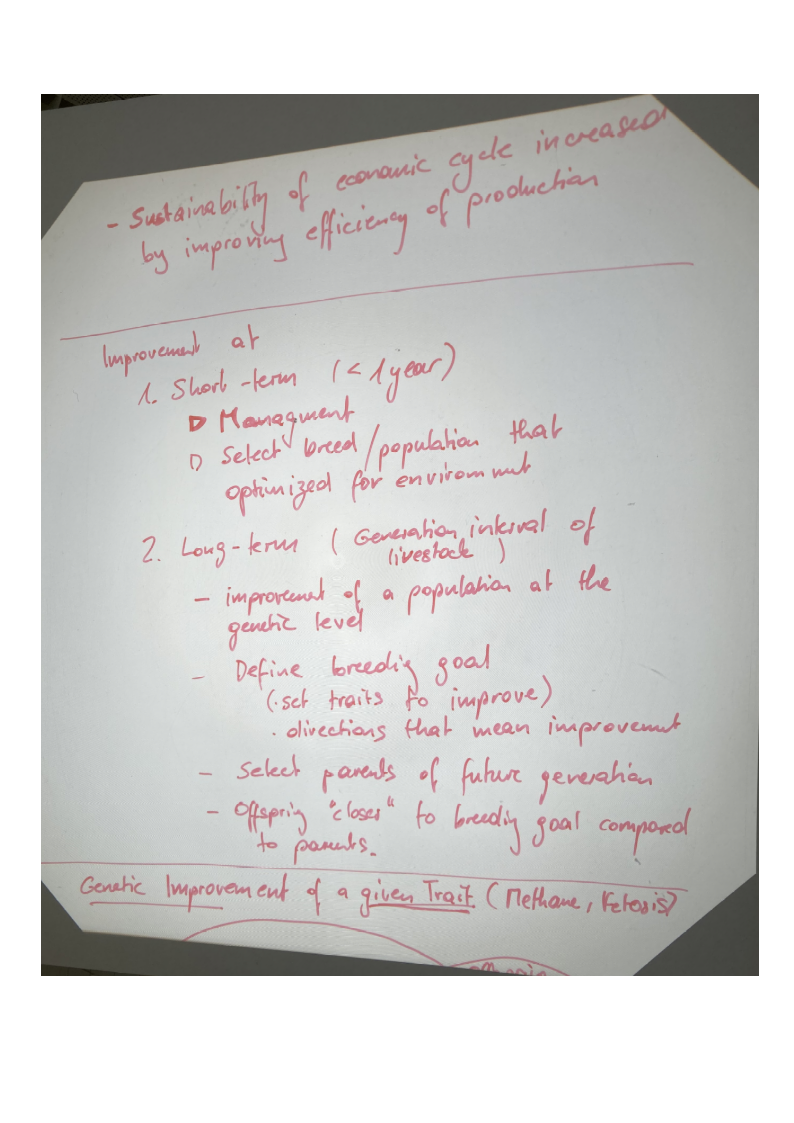 - Sustainability of economic cycle increased
by improving efficiency of production
Improvement at
1. Short-term (< 1 year)
▷ Managment
▷ Select breed/population that
optimized for environment
2. Long-term (Generation interval of
livestock)
- improvement of a population at the
genetic level
- Define breeding goal
(· set traits to improve)
· directions that mean improvement
- Select parents of future generation
- Offspring "closer" to breeding goal compared
to parents.
Genetic Improvement of a given Trait (Methane, Ketosis)